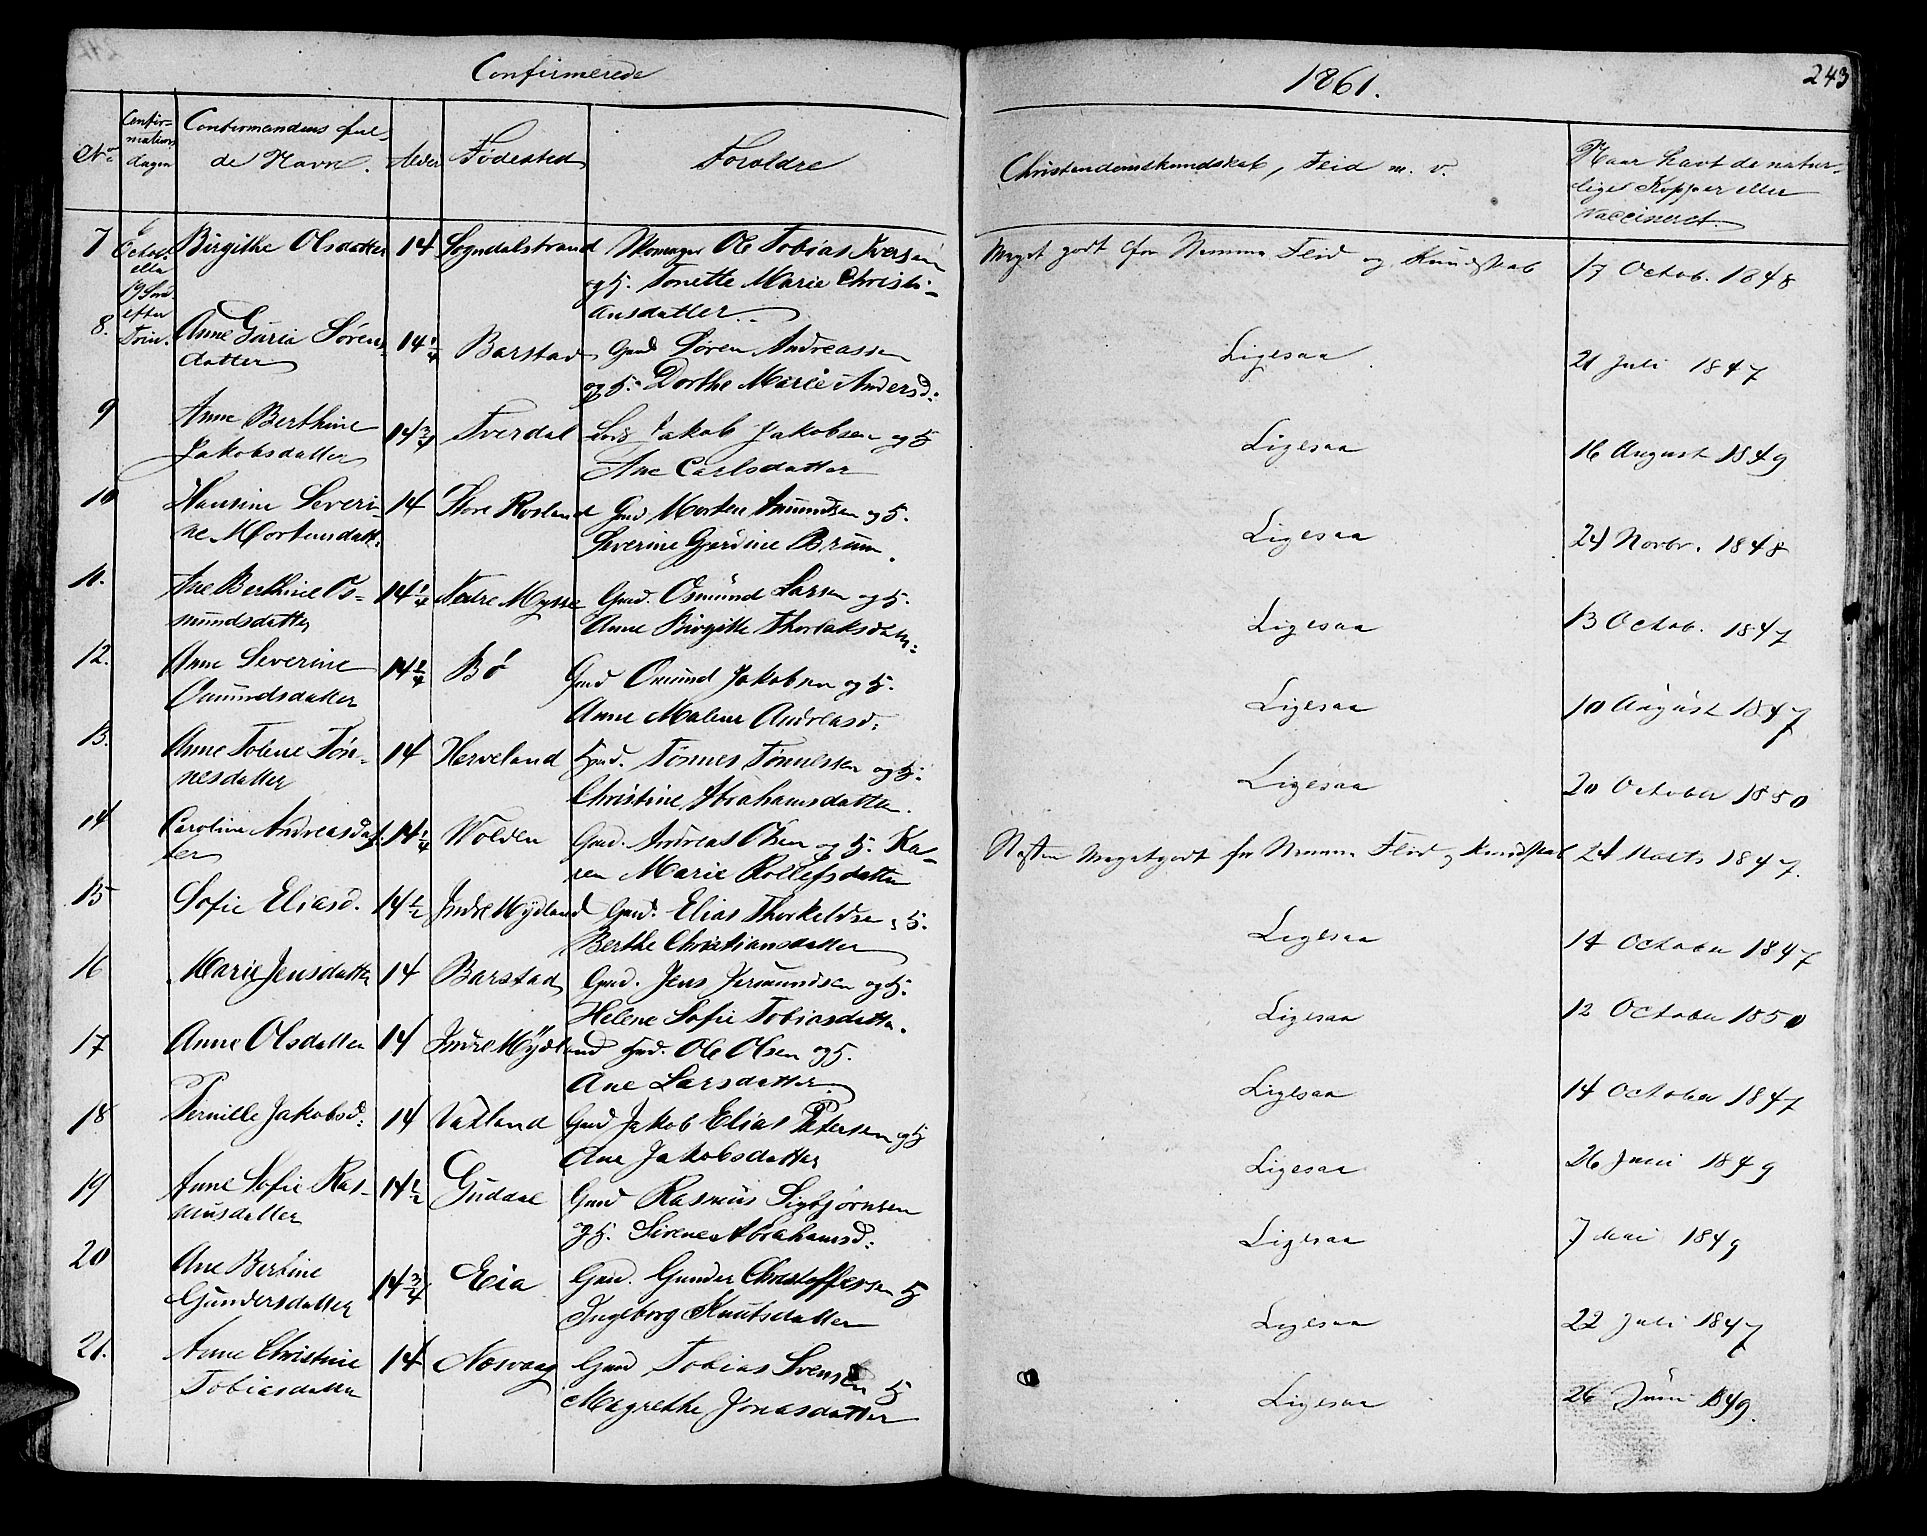 Confirmerede
1861.
243
No. Confirmations dagen Confirmandens fulde Navn. Alder Fødested Forældre Christendomskundskab, Flid m. v. Naar havt de naturlige Kopper eller vaccineret.
6 Octob. eller 19 Sønd. efter Trin.
7 Birgithe Olsdatter 14 Sogndalstrand Ole Tobias Iversen
og H. Tonette Marie Christi-
ansdatter.
Meget godt for Nemme Flid og Kundskab 17 Octob. 1848
8. Anne Guria Sørens- 14 1/4 Barstad Gmd Søren Andreassen
datter og H. Dorthe Marie Andersd:
Ligesaa 21 Juli 1847
9 Anne Berthine 14 3/4 Tverdal Jakob Jakobsen og H
Jakobsdatter Ane Carlsdatter
Ligesaa 16 August 1849
10 Hansine Severi- 14 Store Rosland Gmd Morten Amundsen og H.
ne Mortensdatt: Severine Gjerdine Bruun.
Ligesaa 24 Novbr. 1848
11. Ane Berthine Os- 14 1/4 Nedre Mysse Gmd. Osmund Larsen og H.
mundsdatter Anne Birgitte Thorlaksdatt:
Ligesaa 13 Octob. 1847
12. Anne Severine 14 1/4 Bø Gmd Omund Jakobsen og H.
Omundsdatter Anne Malene Andreasd:
Ligesaa 10 August 1847
13. Anne Tolene Tøn- 14 Herveland Hmd. Tønnes Tønnessen og H.
nesdatter Christine Abrahamsdatter.
Ligesaa 20 October 1850
14 Caroline Andreasdat- 14 1/4 Wolden Gmd. Andreas Olsen og H. Ka-
ter ren Marie Rollefsdatter
Næsten megetgodt for Nemme Flid og Kundskab 24 Marts 1847.
15 Sofie Eliasd. 14 1/2 Indre Mydland Gmd. Elias Thorkeldsen og H.
Berthe Christiansdatter
Ligesaa 14 October 1847
16 Marie Jensdatter 14 Barstad Gmd. Jens Jermundsen og H.
Helene Sofie Tobiasdatter.
Ligesaa 12 October 1850
17 Anne Olsdatter 14 Indre Mydland Hmd. Ole Olsen og H.
Ane Larsdatter
Ligesaa 14 October 1847
18 Pernille Jakobsd: 14 Vatland Gmd Jakob Elias Petersen og H
Ane Jakobsdatter
Ligesaa 26 Juni 1849
19 Anne Sofie Ras- 14 1/2 Guddal Gmd Rasmus Sigbjørnsen
musdatter og H. Sirene Abrahamsd:
Ligesaa 7 Mai 1849
20 Ane Bertine 14 3/4 Eia Gmd. Gunder Christoffersen H
Gundersdatter Ingeborg Knutsdatter
Ligesaa 22 Juli 1847
21. Anne Christine 14 Nesvaag Gmd Tobias Svensen H
Tobiasdatter Magrethe Jonasdatter
Ligesaa 26 Juni 1849.